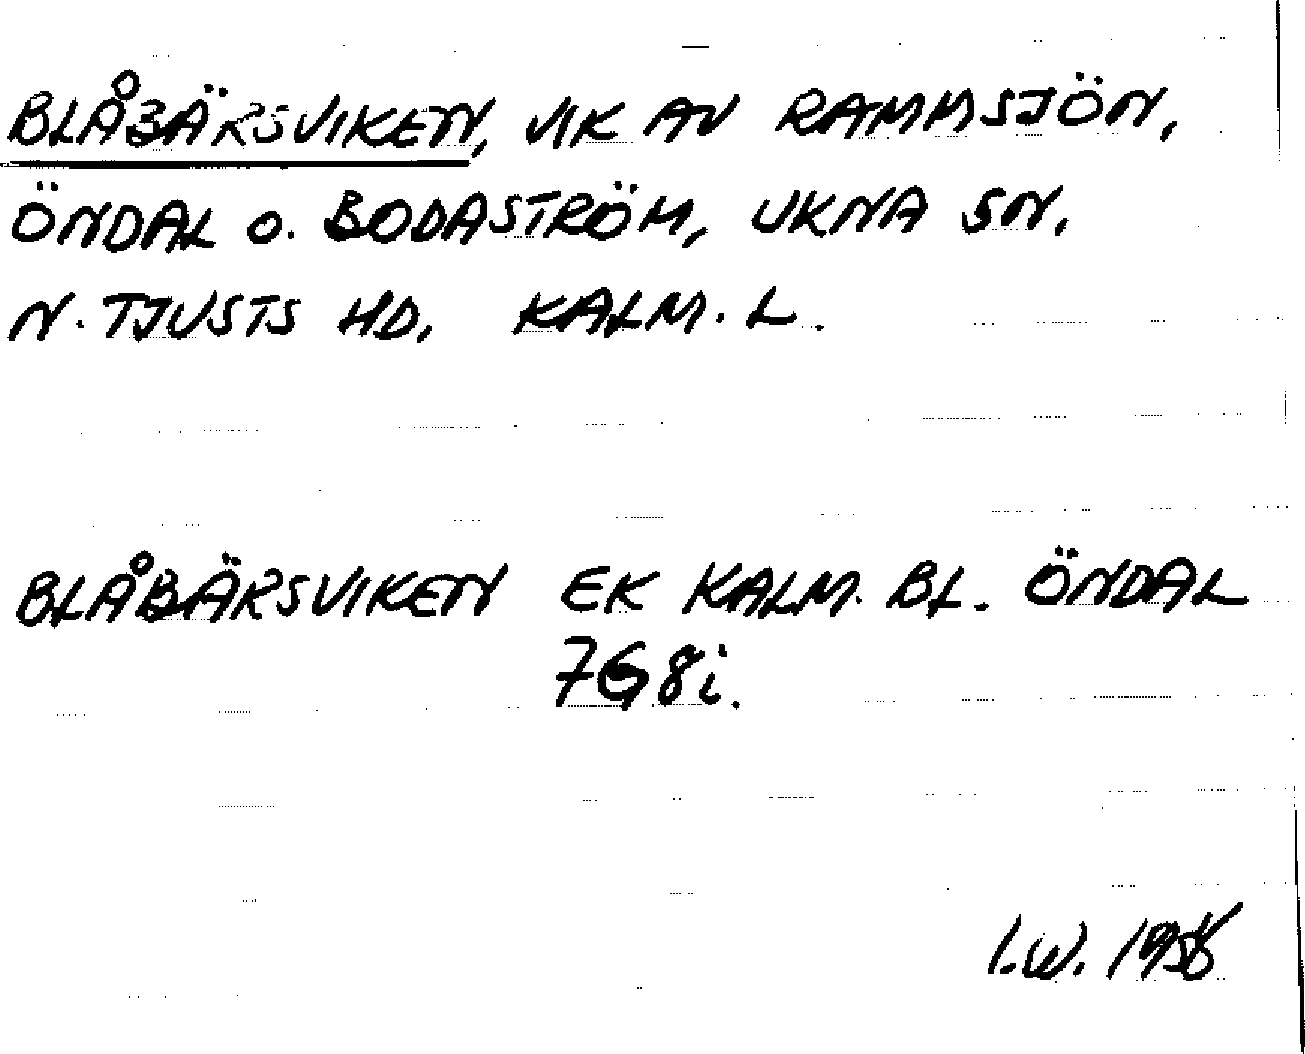 BLÅBÄRSVIKEN, VIK AV RAMMSJÖN,
ÖNDAL o. BODASTRÖM, UKNA SN.
N. TJUSTS HD, KALM. L.
BLÅBÄRSVIKEN EK KALM. BL. ÖNDAL
7G 8i.
I.W.